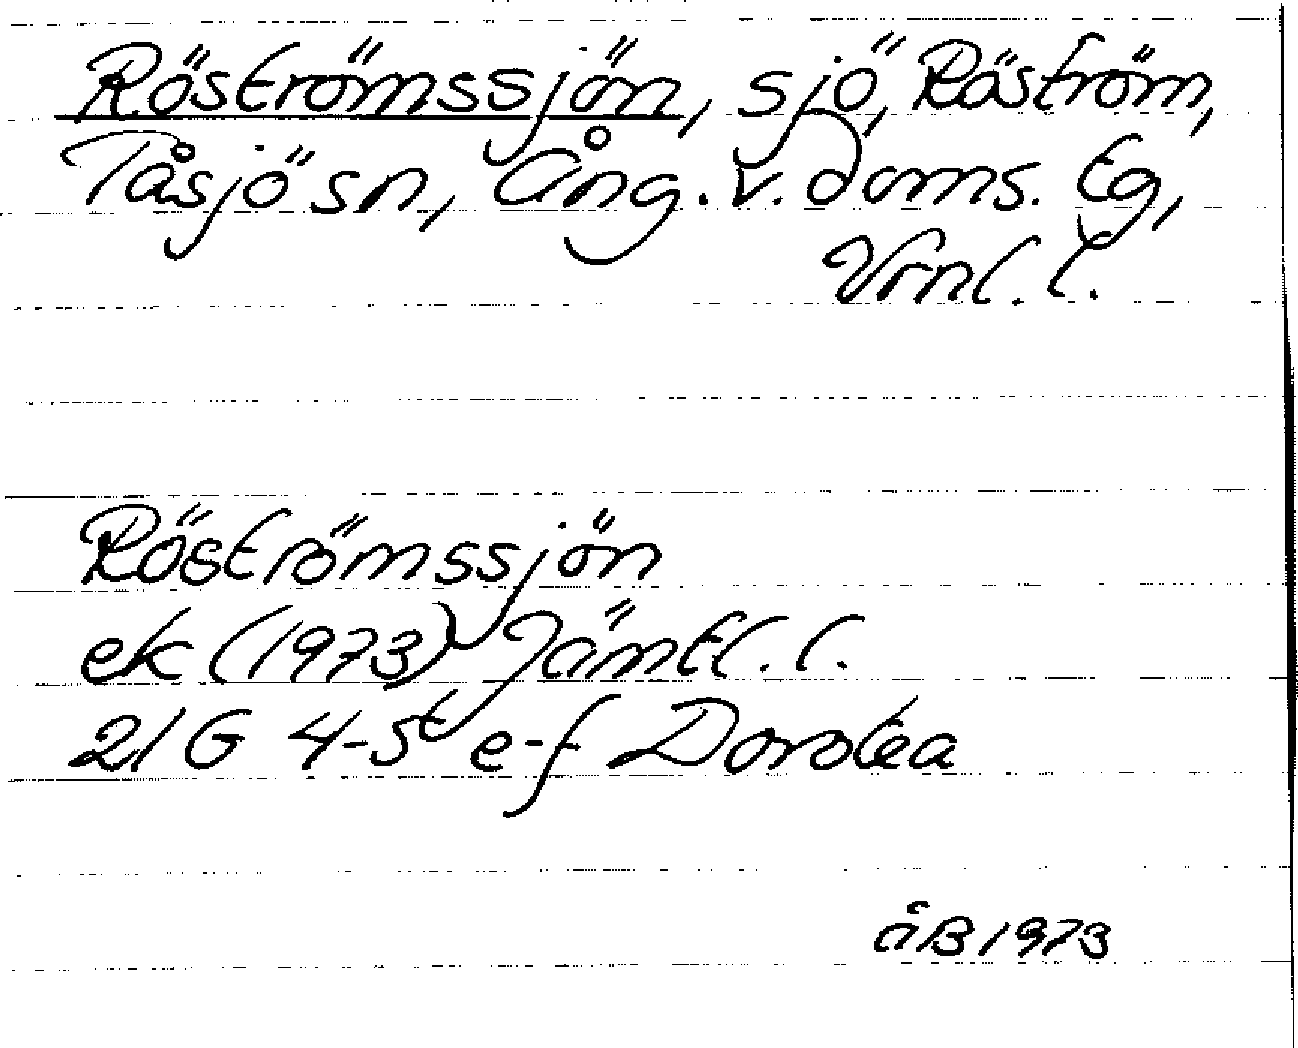 Röströmssjön, sjö, Röström,
Tåsjö sn, Ång. v. doms. tg,
Vrnl. l.
Röströmssjön
ek (1973) Jämtl. l.
21 G 4-5 e-f Dorotea
åB 1973